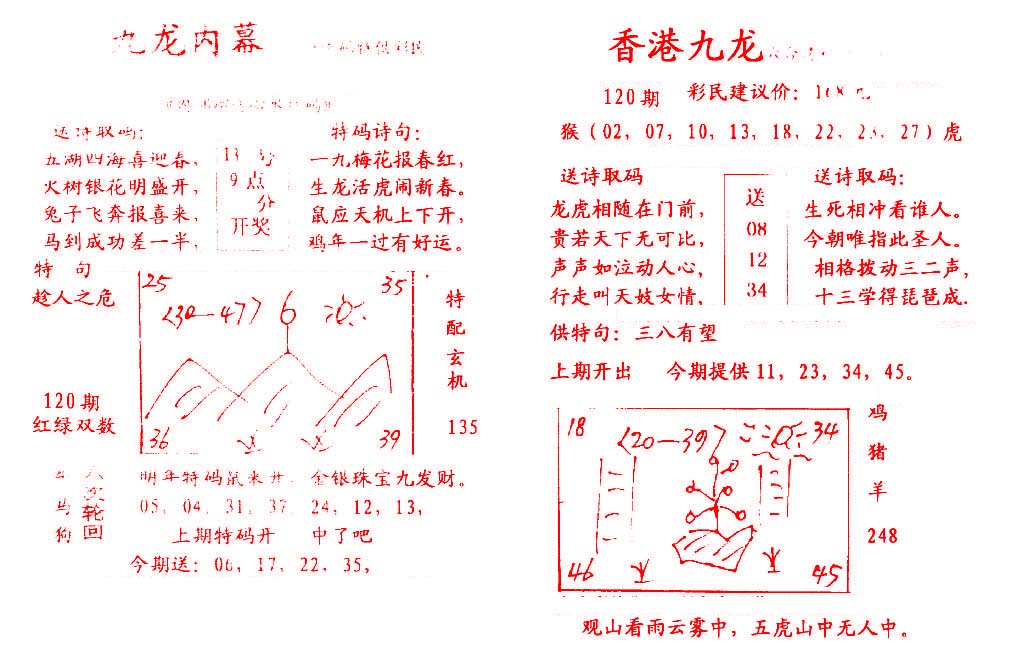 九龙内幕
送诗取码：
五湖四海喜迎春，
火树银花明盛开，
兔子飞奔报喜来，
马到成功差一半，
13 号
9 点
分
开奖
特码诗句：
一九梅花报春红，
生龙活虎闹新春。
鼠应天机上下开，
鸡年一过有好运。
特 句
趁人之危
120期
红绿双数
25
35
<30—47> 6
36
39
特配玄机
135
马
狗
六次轮回
明年特码鼠来开，金银珠宝九发财。
05，04，31，37 24，12，13，
上期特码开 中了吧
今期送：06，17，22，35，
香港九龙
120期 彩民建议价：168元
猴（02，07，10，13，18，22，23，27）虎
送诗取码
龙虎相随在门前，
贵若天下无可比，
声声如泣动人心，
行走叫天妓女情，
送
08
12
34
送诗取码：
生死相冲看谁人。
今朝唯指此圣人。
相格拨动三二声，
十三学得琵琶成.
供特句：三八有望
上期开出 今期提供11，23，34，45。
18
<20—39>
34
46
45
鸡
猪
羊
248
观山看雨云雾中，五虎山中无人中。